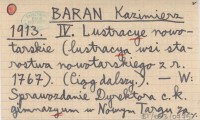 BARAN Kazimierz
1913. IV. Lustracye nowo-
tarskie (lustracya wsi sta-
rostwa nowotarskiego z r.
1767). (Ciąg dalszy.). — W:
Sprawozdanie Dyrektora c.k.
gimnazyum w Nowym Targu za